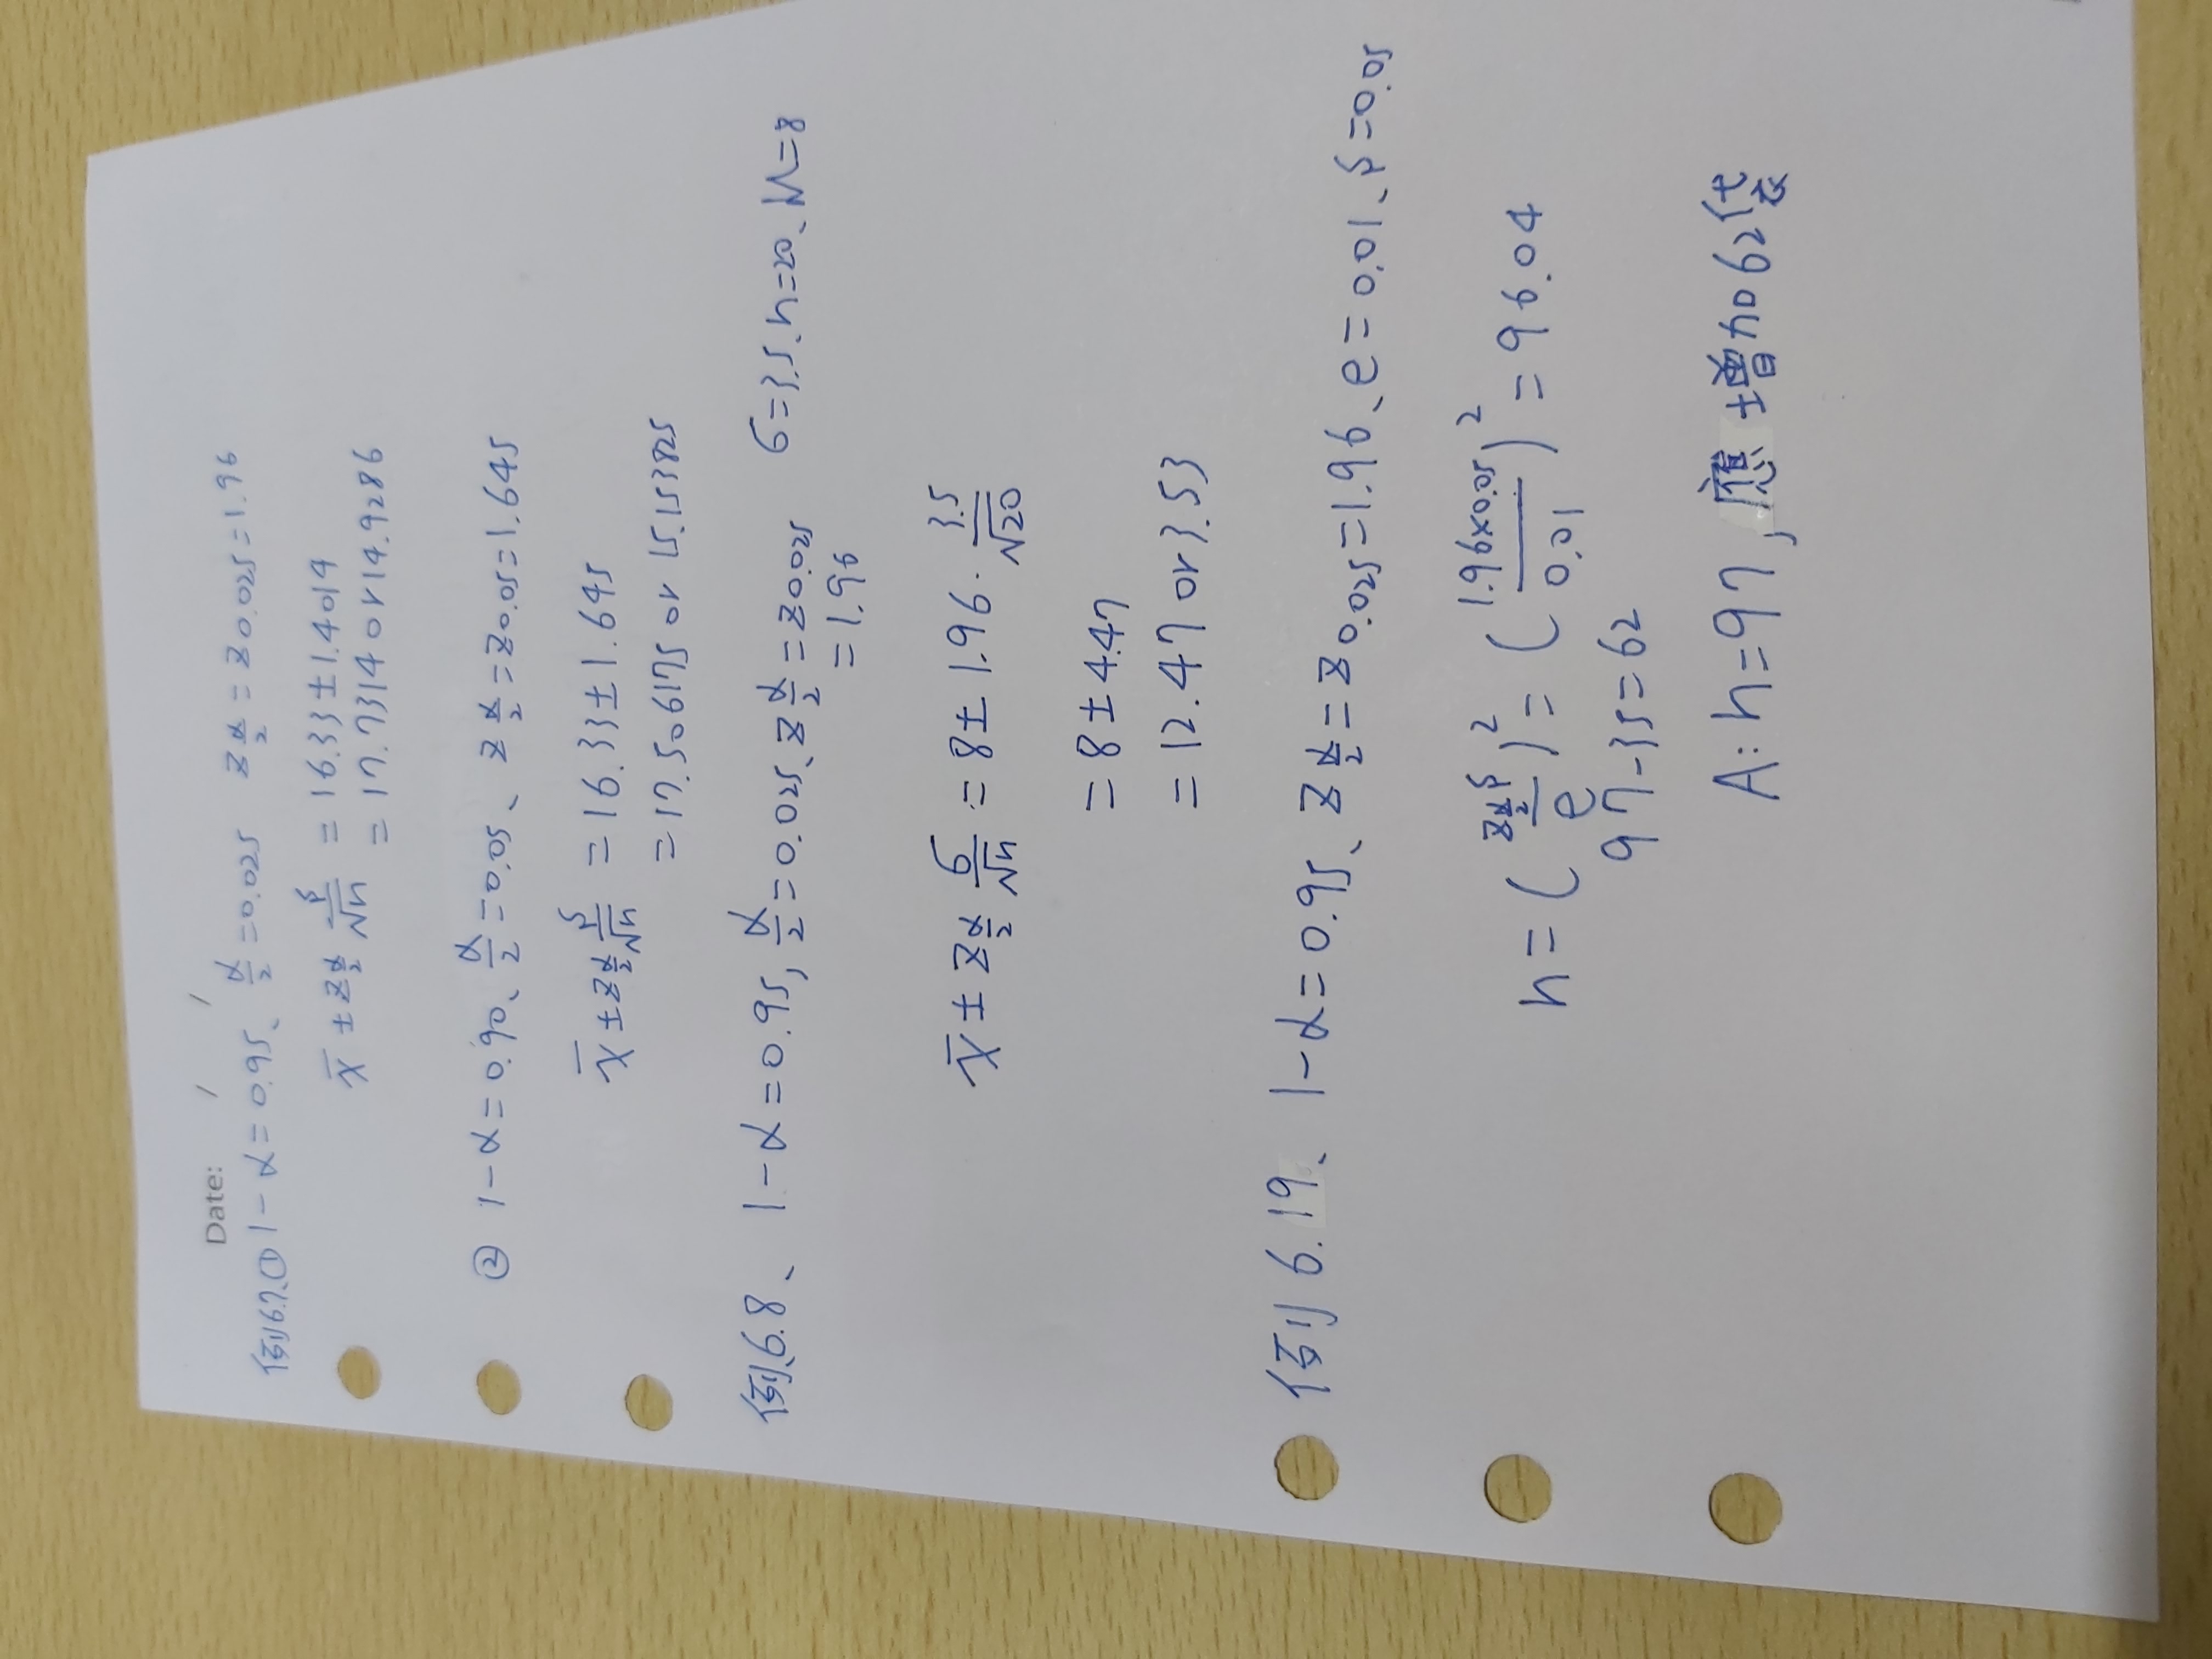 Date: / /
例6.7、① 1-α=0.95、α/2=0.025 Zα/2=Z0.025=1.96
x̄±Zα/2 S/√n =16.33±1.4014
=17.7314 or 14.9286
② 1-α=0.90、α/2=0.05、Zα/2=Z0.05=1.645
x̄±Zα/2 S/√n =16.33±1.645
=17.506175 or 15.153825
例6.8、 1-α=0.95, α/2=0.025、Zα/2=Z0.025 σ=3.5、n=20、M=8
=1.96
x̄±Zα/2 σ/√n =8±1.96·3.5/√20
=8±4.47
=12.47 or 3.53
例6.19、 1-α=0.95、Zα/2=Z0.025=1.96、e=0.01、S=0.05
n=(Zα/2 S/e)²=(1.96×0.05/0.01)²=96.04
97-35=62
A: n=97, 應增加62袋